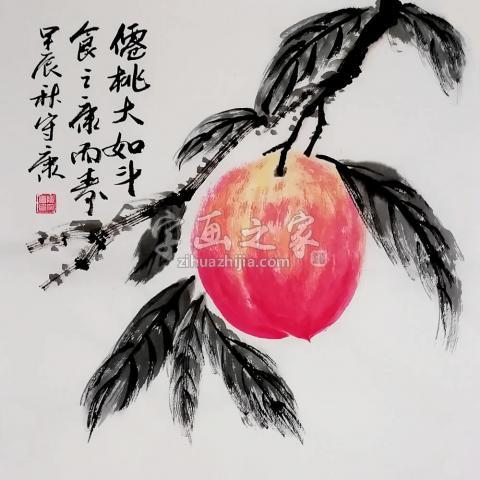 僊桃大如斗
食之康而寿
甲辰秋守康
字画之家
zihuazhijia.com